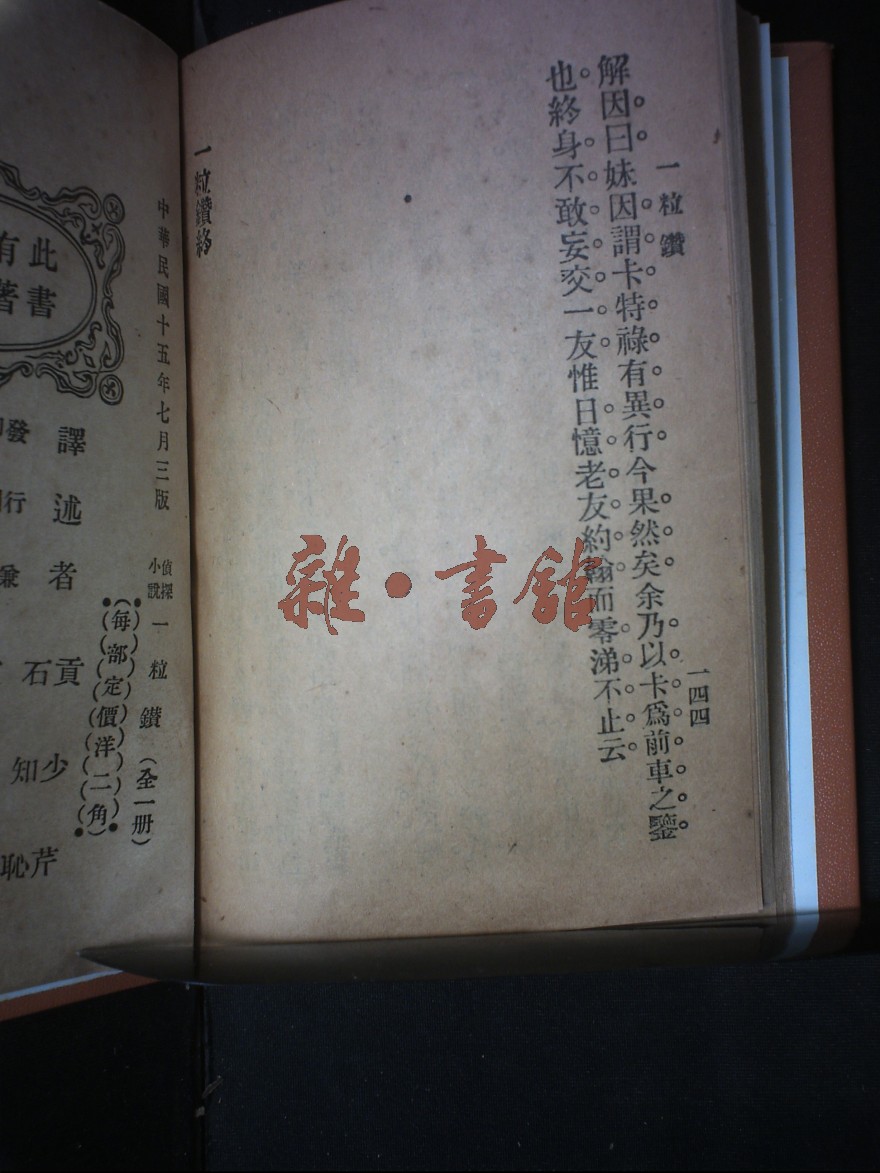 一粒鑽
一四四
解因曰妹因謂卡特祿有異行今果然矣余乃以卡爲前車之鑒
也終身不敢妄交一友惟日憶老友約翰而零涕不止云
一粒鑽終
雜·書館
中華民國十五年七月三版
偵探小說 一粒鑽(全一册)
(每部定價洋二角)
此書
有著
譯述者 貢少芹
發行
石知恥
兼